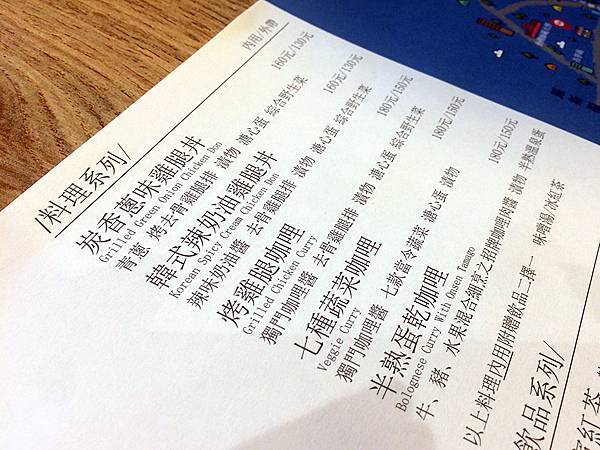 /料理系列/ 內用/外帶
炭香蔥味雞腿丼 160元/130元
Grilled Green Onion Chicken Don
青蔥 烤去骨雞腿排 漬物 溏心蛋 綜合野生菜
韓式辣奶油雞腿丼 160元/130元
Korean Spicy Cream Chicken Don
辣味奶油醬 去骨雞腿排 漬物 溏心蛋 綜合野生菜
烤雞腿咖哩 180元/150元
Grilled Chicken Curry
獨門咖哩醬 去骨雞腿排 漬物 溏心蛋 綜合野生菜
七種蔬菜咖哩 180元/150元
Veggie Curry
獨門咖哩醬 七款當令蔬菜 溏心蛋 漬物
半熟蛋乾咖哩 180元/150元
Bolognese Curry With Onsen Tamago
牛、豬、水果混合細煮之招牌咖哩肉醬 漬物 半熟溫泉蛋
以上料理內用附贈飲品二擇一 味噌湯/冰紅茶
飲品系列/
紅茶